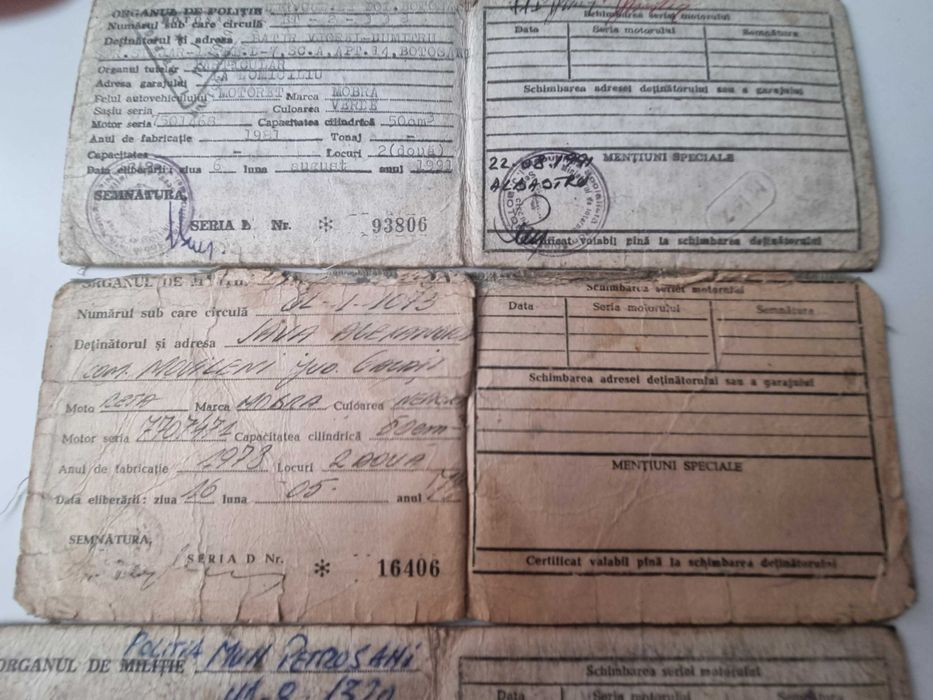 ORGANUL DE POLIȚIE
Numărul sub care circulă
Deținătorul și adresa BATIR VIOREL-DUMITRU
SC.A,APT.14,BOTOSANI
Organul tutelar PARTICULAR
Adresa garajului LA DOMICILIU
Felul autovehiculului MOTORET Marca MOBRA
Sașiu seria Culoarea VERDE
Motor seria 7501468 Capacitatea cilindrică 50cm2
Anul de fabricație 1981 Tonaj -
Capacitatea - Locuri 2(două)
Data eliberării: ziua 6 luna august anul 1991
SEMNĂTURA,
SERIA D Nr. * 93806
Schimbarea seriei motorului
Data Seria motorului Semnătura
Schimbarea adresei deținătorului sau a garajului
MENȚIUNI SPECIALE
22.08.1991
ALBASTRU
Certificat valabil pînă la schimbarea deținătorului
ORGANUL DE MILIȚIE
Numărul sub care circulă GL-1-1073
Deținătorul și adresa SAVA ALEXANDRU
COM. MOVILENI jud. Galați
Moto RETA Marca MOBRA Culoarea
Motor seria 7707471 Capacitatea cilindrică 50cm
Anul de fabricație 1973 Locuri 2 DOUA
Data eliberării: ziua 16 luna 05. anul
SEMNĂTURA,
SERIA D Nr. * 16406
Schimbarea seriei motorului
Data Seria motorului Semnătura
Schimbarea adresei deținătorului sau a garajului
MENȚIUNI SPECIALE
Certificat valabil pînă la schimbarea deținătorului
ORGANUL DE MILIȚIE POLITIA MUN. PETROSANI
1320
Schimbarea seriei motorului
Data Seria motorului Semnătura